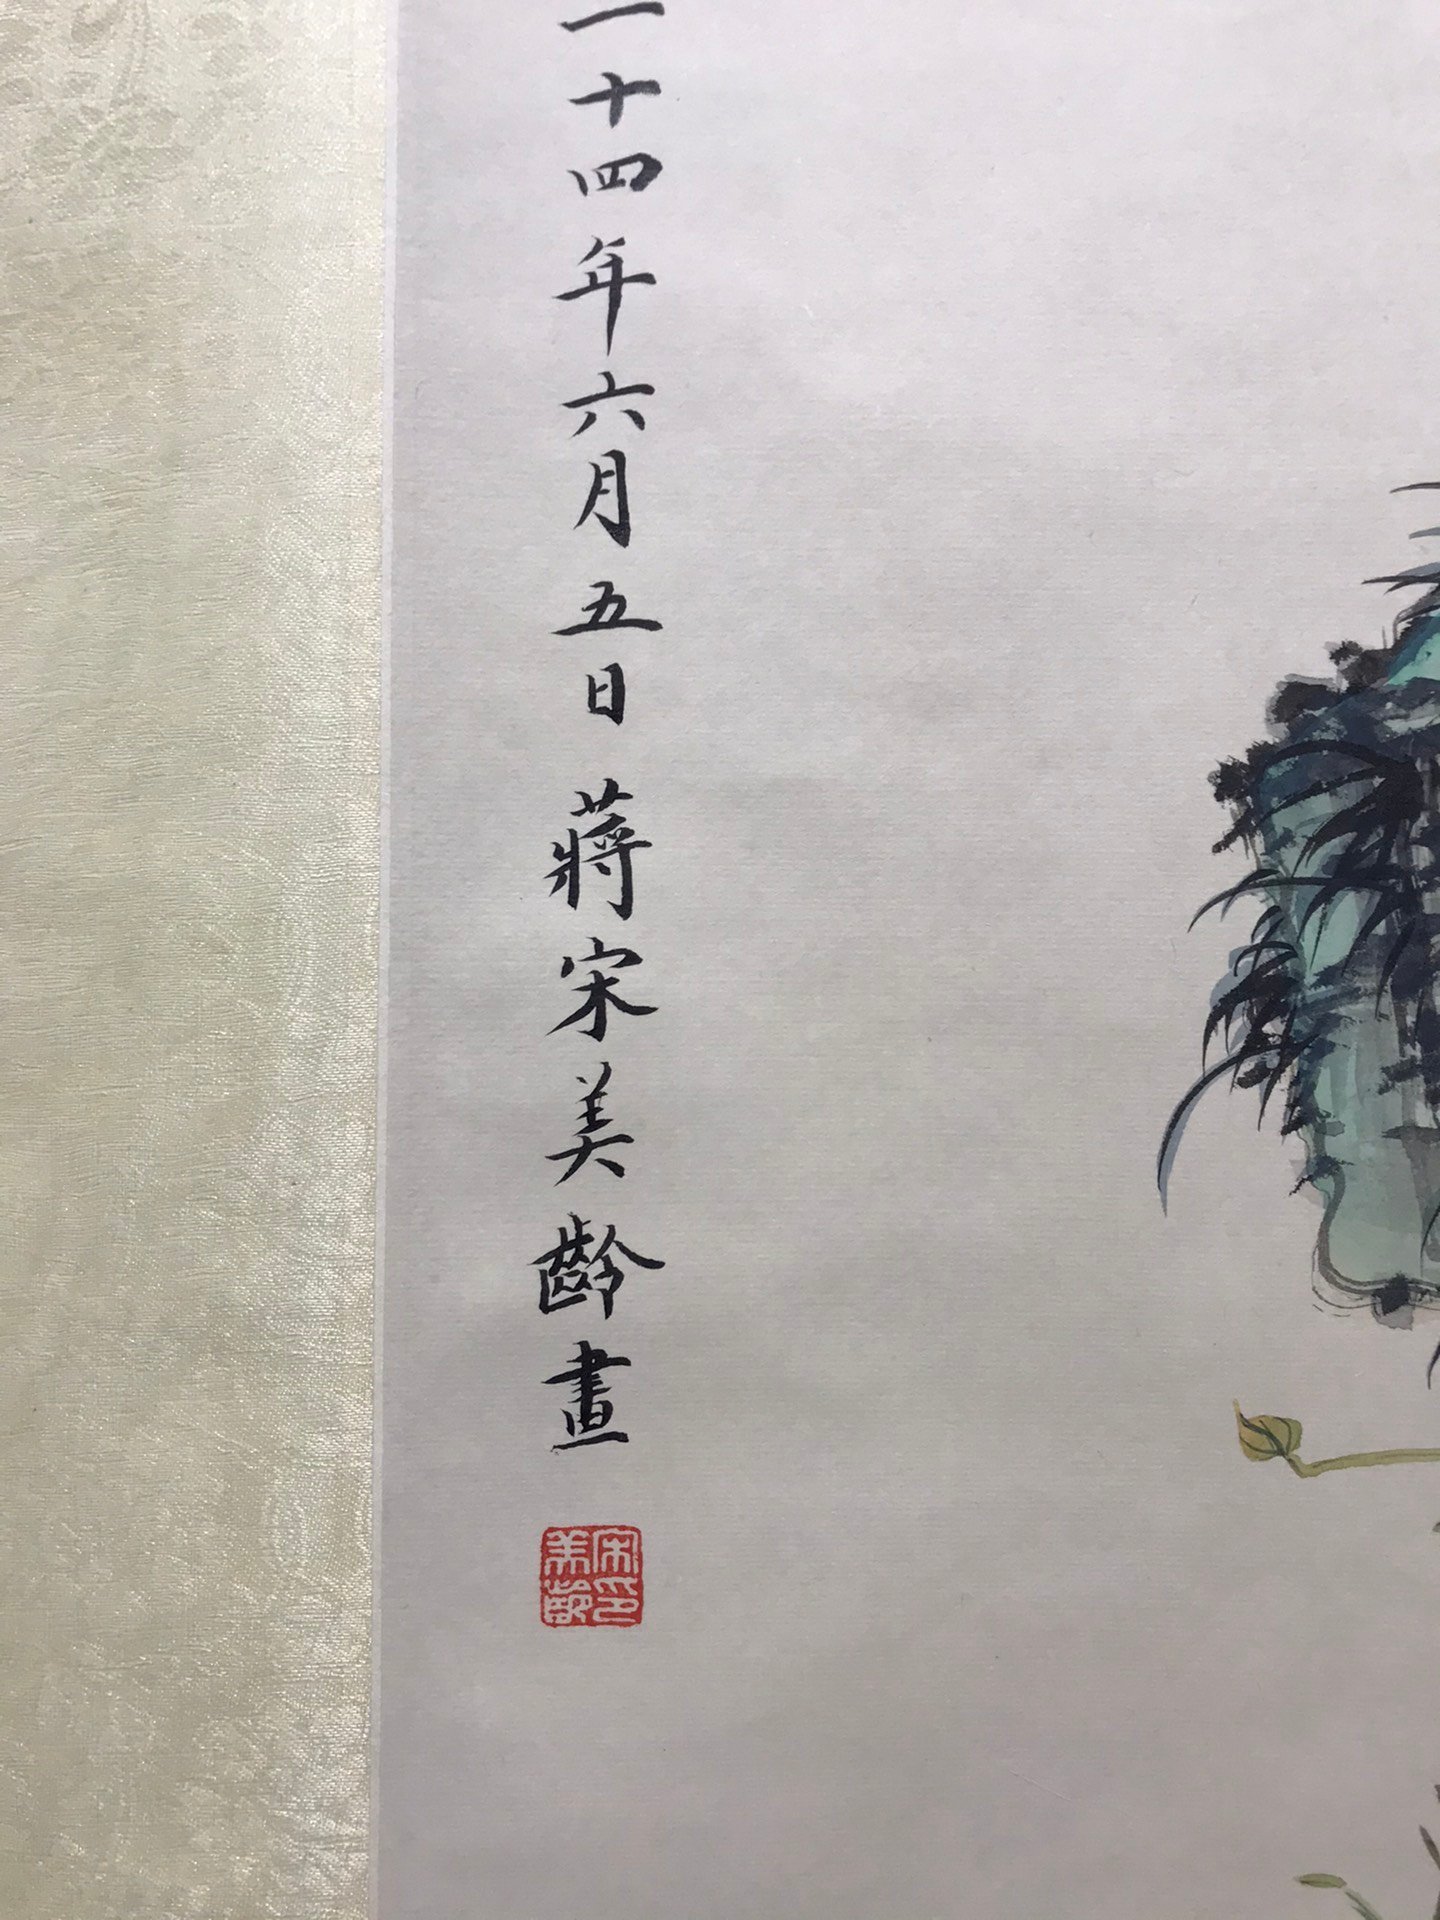 一十四年六月五日蔣宋美齡畫
宋美齡印